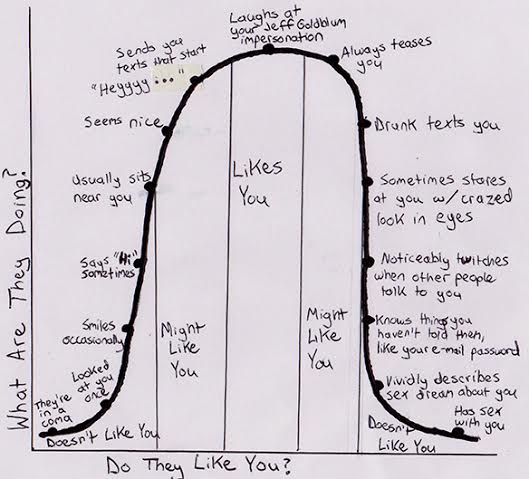 Laughs at
your Jeff Goldblum
impersonation
Sends you
texts that start
"Heyyyy ... "
Always teases
you
Seems nice
Drunk texts you
Usually sits
near you
Likes
You
Sometimes stares
at you w/ crazed
look in eyes
Says "Hi"
sometimes
Noticeably twitches
when other people
talk to you
Smiles
occasionally
Might
Like
You
Might
Like
You
Knows things you
haven't told them,
like your e-mail password
They're
in a
coma
Looked
at you
once
Vividly describes
sex dream about you
Has sex
with you
Doesn't Like You
Doesn't
Like You
What Are They Doing?
Do They Like You?